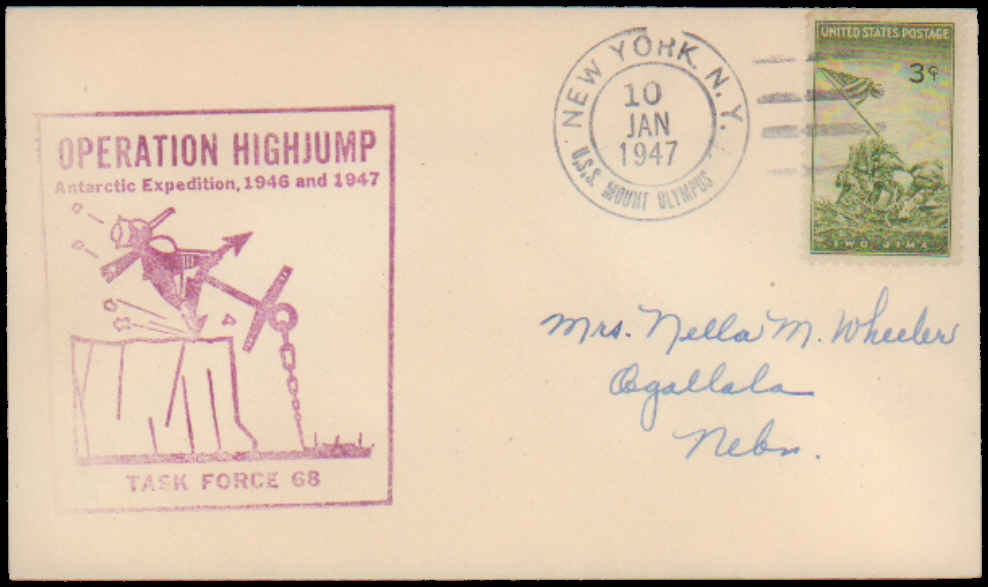 OPERATION HIGHJUMP
Antarctic Expedition, 1946 and 1947
TASK FORCE 68
NEW YORK, N.Y.
10
JAN
1947
U.S.S. MOUNT OLYMPUS
UNITED STATES POSTAGE
3¢
IWO JIMA
Mrs. Nella M. Wheeler
Ogallala
Nebr.